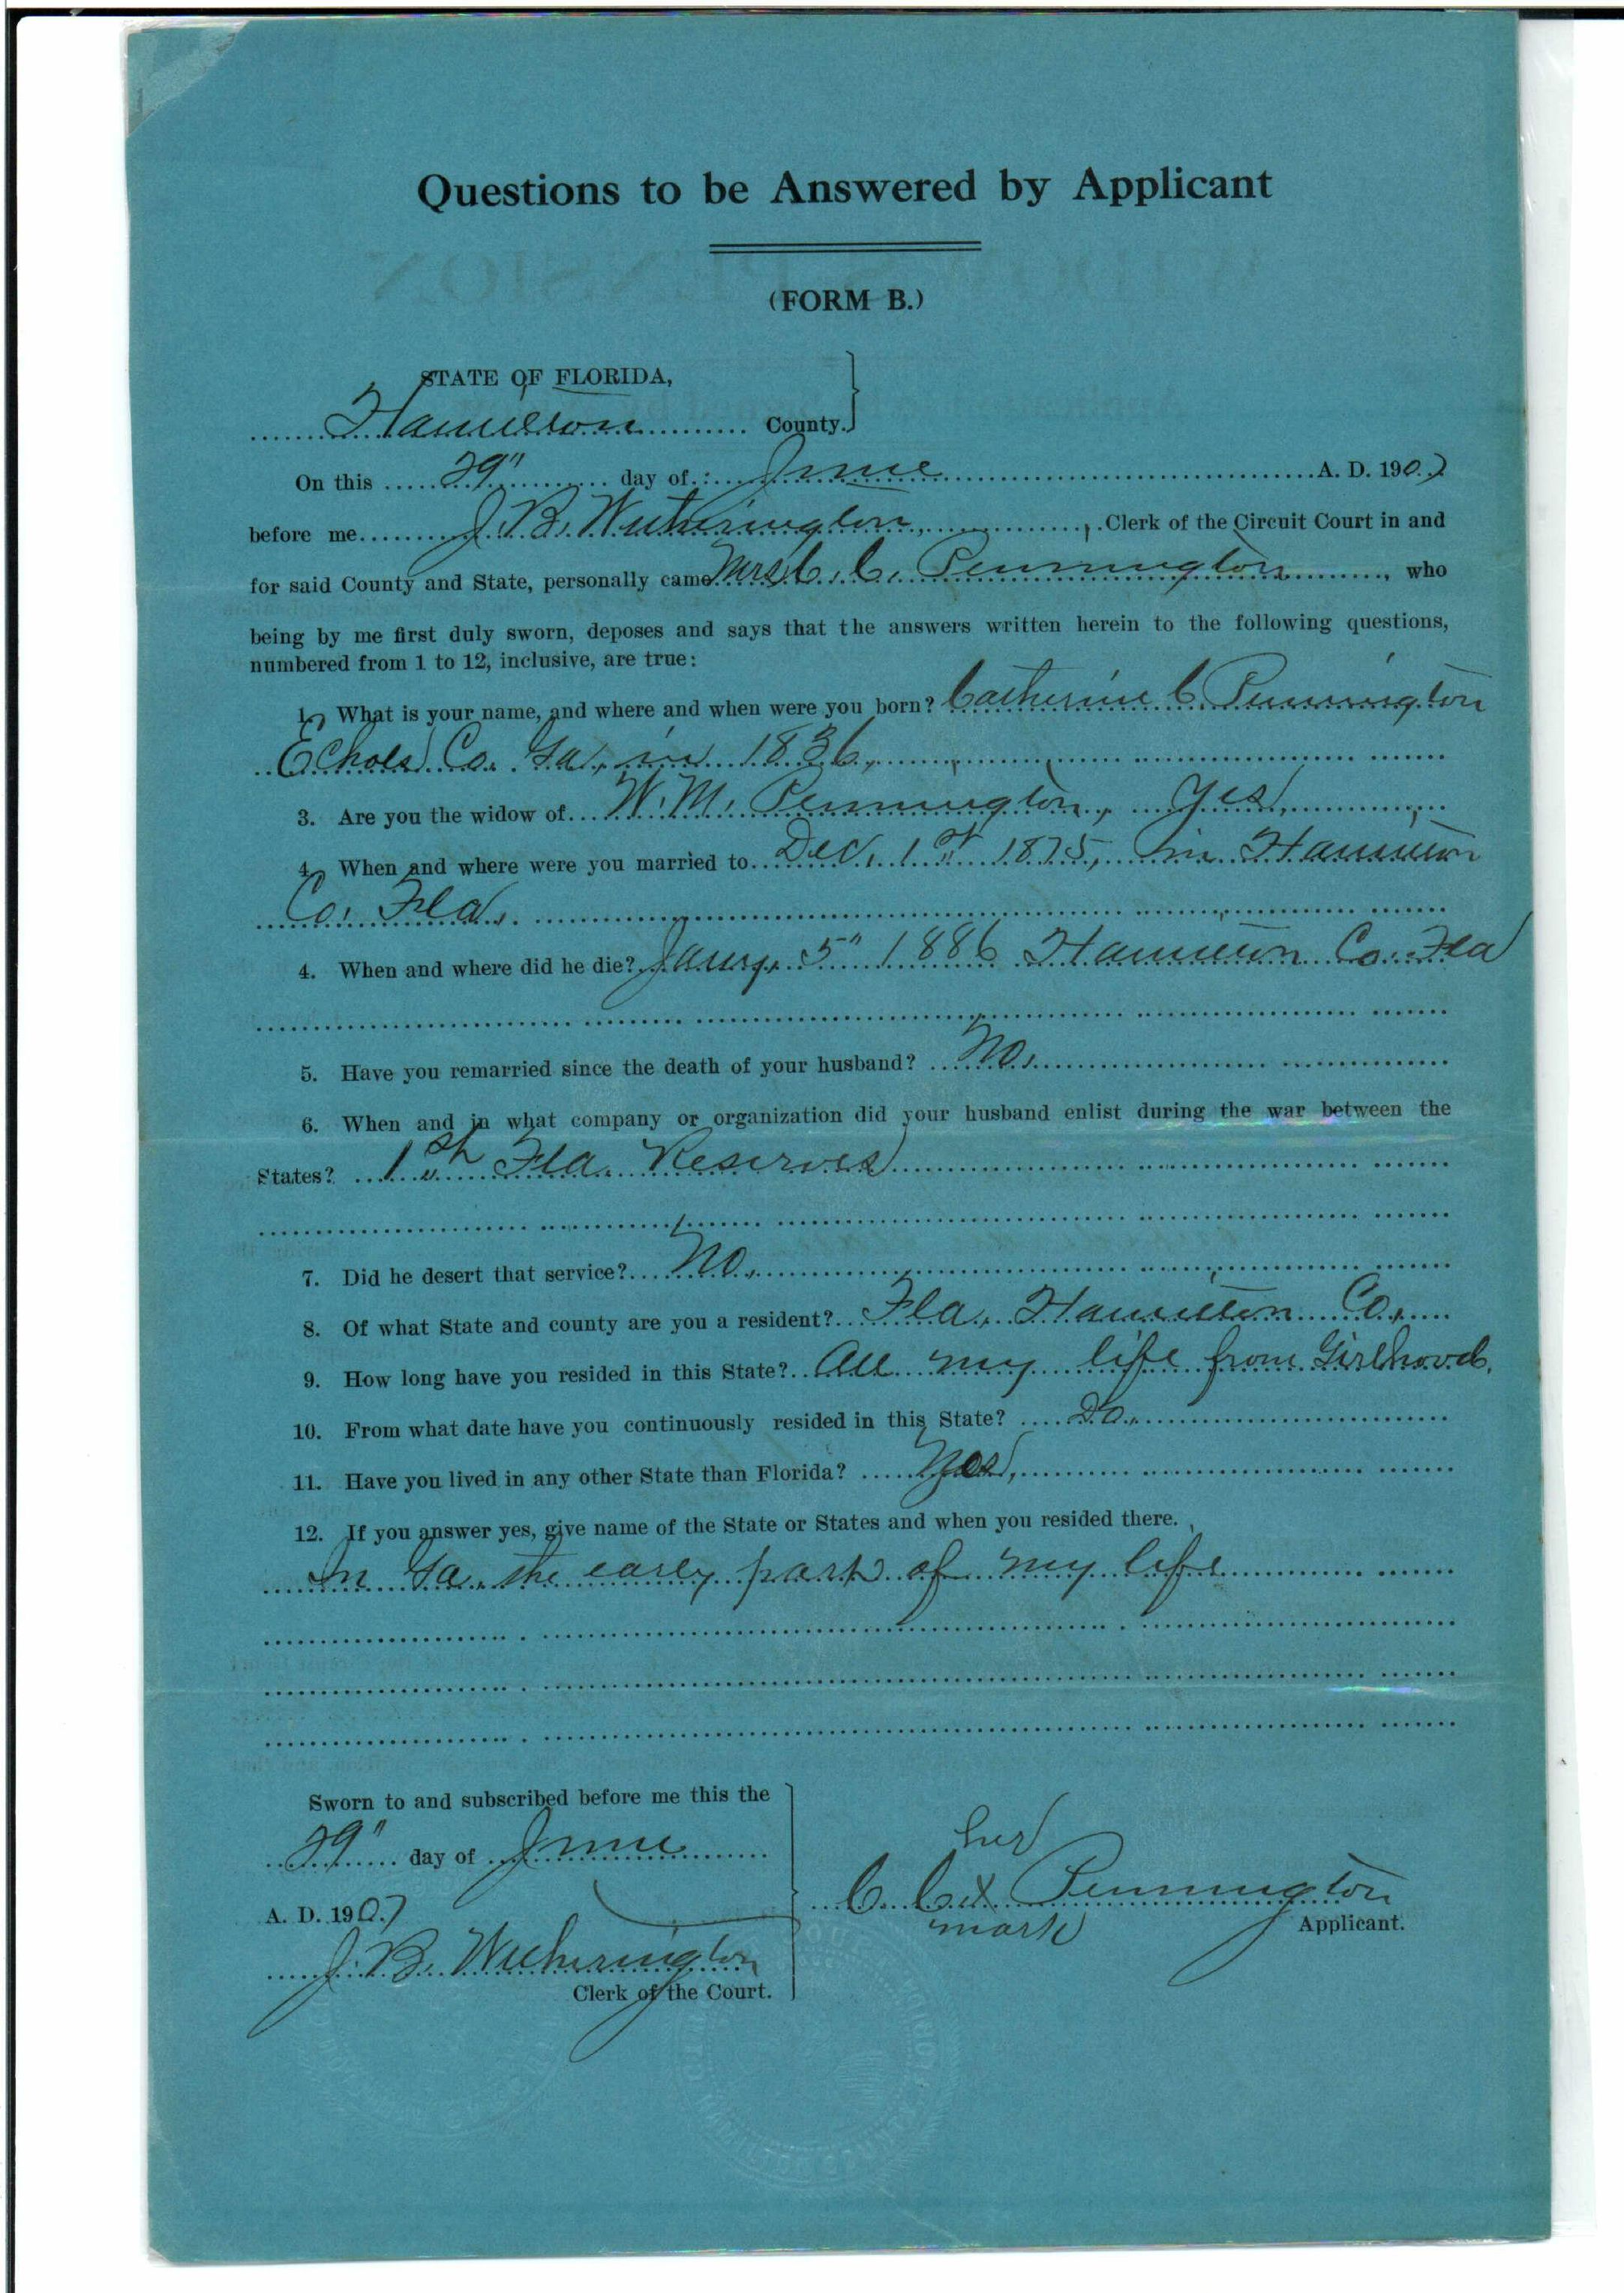 Questions to be Answered by Applicant
(FORM B.)
STATE OF FLORIDA,
Hamilton County.
On this 29" day of June A. D. 1907
before me J. B. Witherington, Clerk of the Circuit Court in and
for said County and State, personally came Mrs C. C. Pennington, who
being by me first duly sworn, deposes and says that the answers written herein to the following questions,
numbered from 1 to 12, inclusive, are true:
1. What is your name, and where and when were you born? Catherine C. Pennington
Echols Co. Ga, in 1836,
3. Are you the widow of W. M. Pennington, Yes,
4. When and where were you married to Dec. 1st 1875, in Hamilton
Co. Fla.
4. When and where did he die? Jany. 5" 1886 Hamilton Co. Fla
5. Have you remarried since the death of your husband? No.
6. When and in what company or organization did your husband enlist during the war between the
States? 1st Fla. Reserves
7. Did he desert that service? No.
8. Of what State and county are you a resident? Fla, Hamilton Co,
9. How long have you resided in this State? All my life from Girlhood.
10. From what date have you continuously resided in this State? Do.
11. Have you lived in any other State than Florida? Yes,
12. If you answer yes, give name of the State or States and when you resided there.
In Ga. the early part of my life
Sworn to and subscribed before me this the
29" day of June
A. D. 1907
J. B. Witherington
Clerk of the Court.
her
C. C. x Pennington
mark
Applicant.